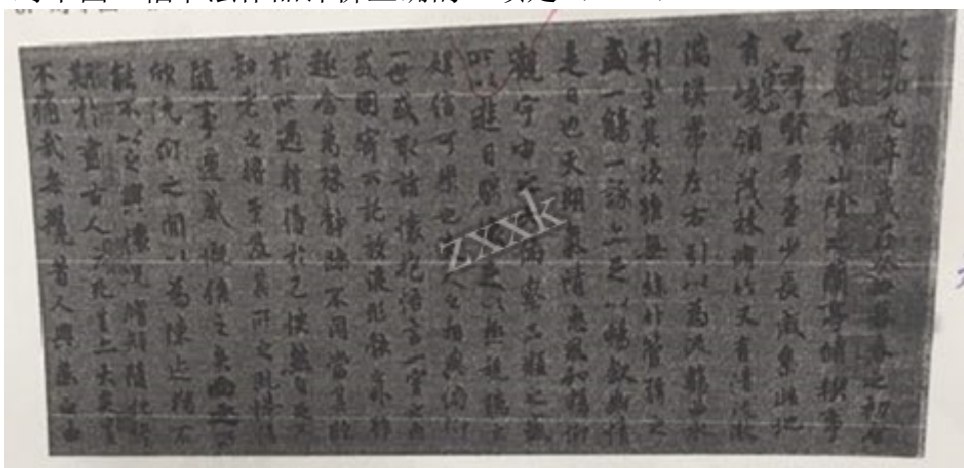 永和九年歲在癸丑暮春之初會
于會稽山陰之蘭亭脩稧事
也羣賢畢至少長咸集此地
有崇山峻領茂林脩竹又有清流激
湍暎帶左右引以為流觴曲水
列坐其次雖無絲竹管弦之
盛一觴一詠亦足以暢敘幽情
是日也天朗氣清惠風和暢仰
觀宇宙之大俯察品類之盛
所以遊目騁懷足以極視聽之
娛信可樂也夫人之相與俯仰
一世或取諸懷抱悟言一室之內
或因寄所託放浪形骸之外雖
趣舍萬殊靜躁不同當其欣
於所遇暫得於己快然自足不
知老之將至及其所之既惓情
隨事遷感慨係之矣向之所
欣俛仰之閒以為陳迹猶不
能不以之興懷況脩短隨化終
期於盡古人云死生亦大矣豈
不痛哉每攬昔人興感之由
zxxk